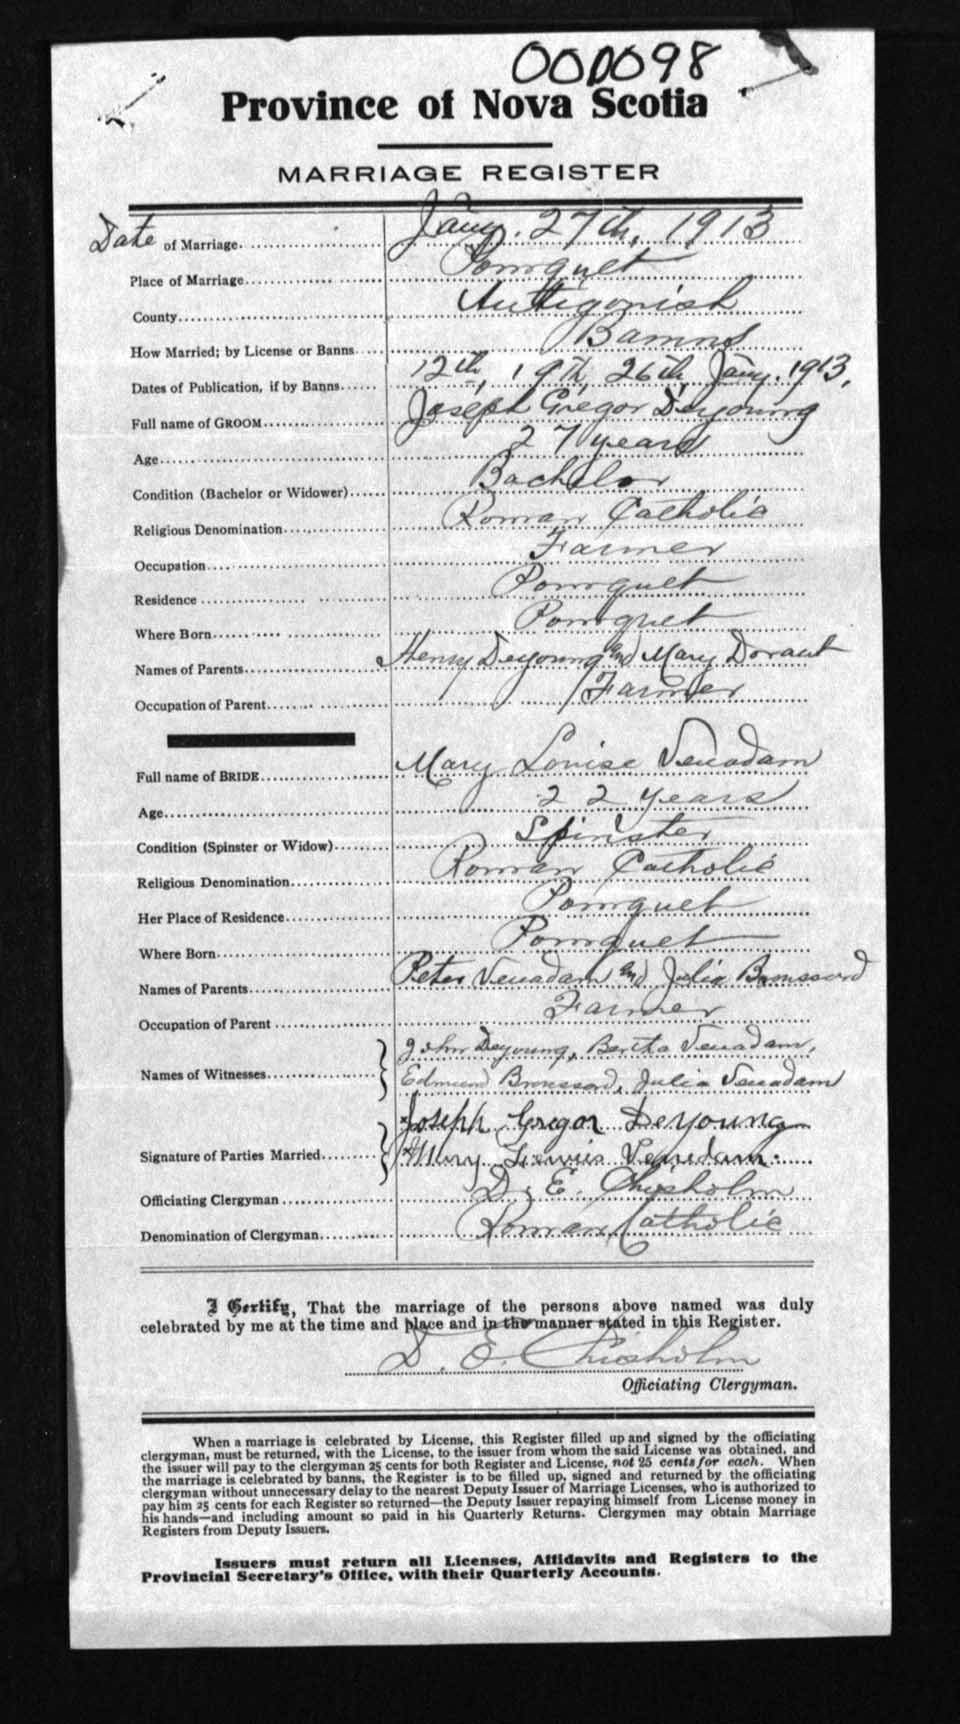 000098
Province of Nova Scotia
MARRIAGE REGISTER
Date of Marriage. Jany. 27th, 1913
Place of Marriage Pomquet
County Antigonish
How Married; by License or Banns Banns
Dates of Publication, if by Banns 12th, 19th, 26th, Jany. 1913,
Full name of GROOM Joseph Gregor Deyoung
Age 27 years
Condition (Bachelor or Widower) Bachelor
Religious Denomination Roman Catholic
Occupation Farmer
Residence Pomquet
Where Born Pomquet
Names of Parents Henry Deyoung and Mary Dorant
Occupation of Parent Farmer
Full name of BRIDE Mary Louise Venadam
Age 22 years
Condition (Spinster or Widow) Spinster
Religious Denomination Roman Catholic
Her Place of Residence Pomquet
Where Born Pomquet
Names of Parents Peter Venadam and Julia Broussard
Occupation of Parent Farmer
Names of Witnesses John Deyoung, Bertha Venadam,
Edmund Broussard, Julia Venadam
Joseph Gregor DeYoung
Signature of Parties Married Mary Venedam.
Officiating Clergyman D. E. Chisholm
Denomination of Clergyman Roman Catholic
I Certify, That the marriage of the persons above named was duly
celebrated by me at the time and place and in the manner stated in this Register.
D. E. Chisholm
Officiating Clergyman.
When a marriage is celebrated by License, this Register filled up and signed by the officiating
clergyman, must be returned, with the License, to the issuer from whom the said License was obtained, and
the issuer will pay to the clergyman 25 cents for both Register and License, not 25 cents for each. When
the marriage is celebrated by banns, the Register is to be filled up, signed and returned by the officiating
clergyman without unnecessary delay to the nearest Deputy Issuer of Marriage Licenses, who is authorized to
pay him 25 cents for each Register so returned—the Deputy Issuer repaying himself from License money in
his hands—and including amount so paid in his Quarterly Returns. Clergymen may obtain Marriage
Registers from Deputy Issuers.
Issuers must return all Licenses, Affidavits and Registers to the
Provincial Secretary's Office, with their Quarterly Accounts.